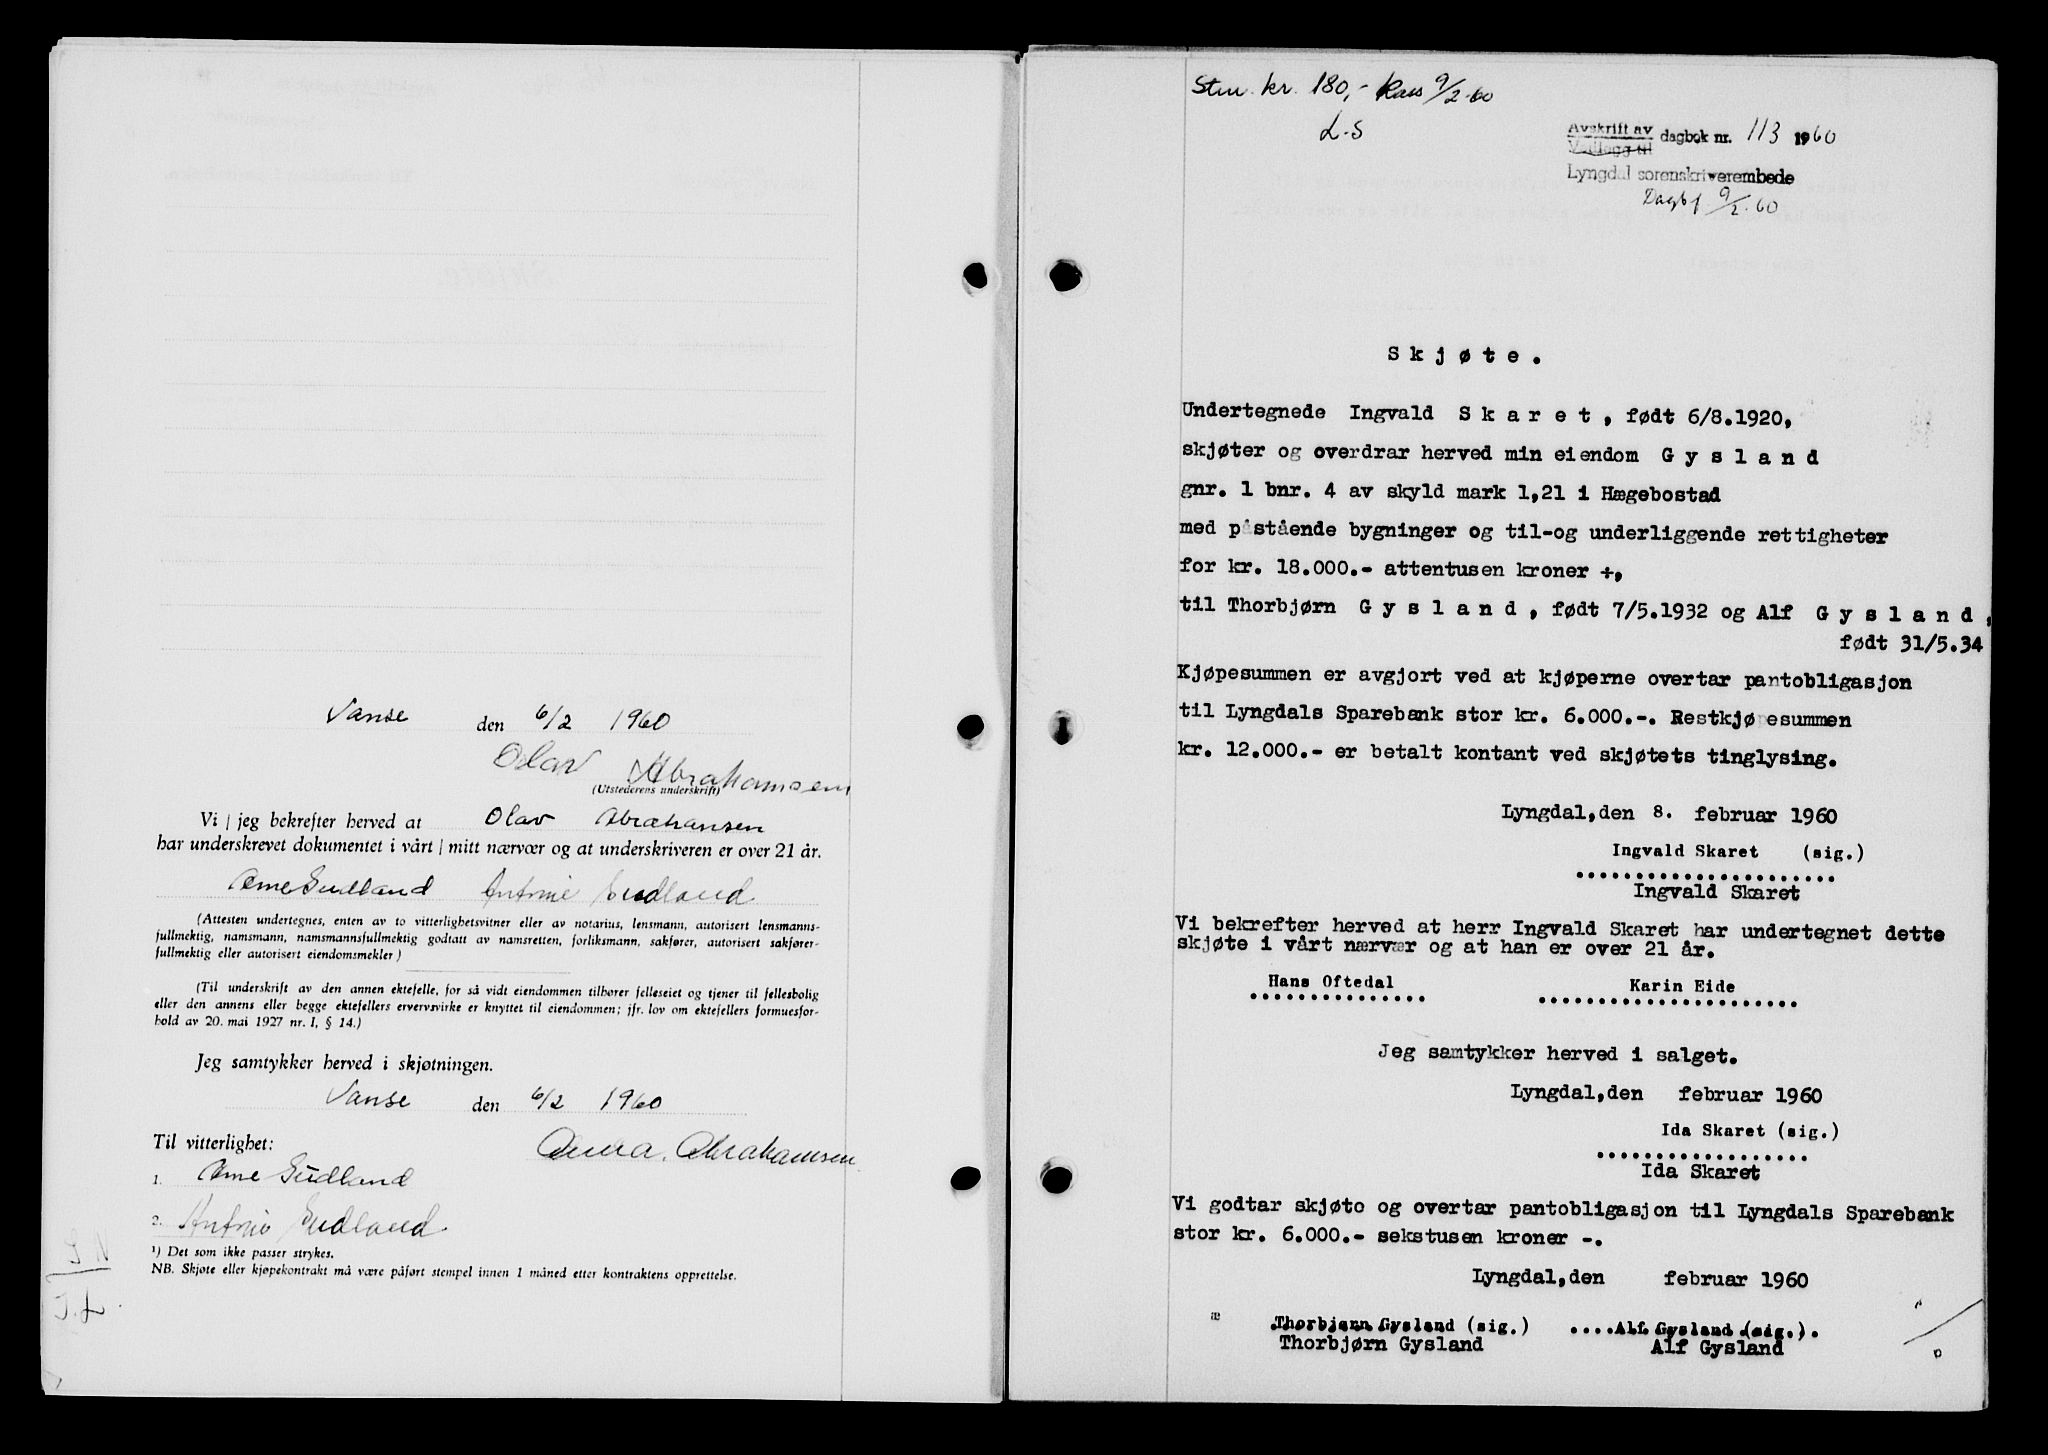 Vanse den 6/2 1960
Olav Abrahamsen
(Utstederens underskrift)
Vi / jeg bekrefter herved at Olav Abrahamsen
har underskrevet dokumentet i vårt / mitt nærvær og at underskriveren er over 21 år.
Arne Eudland Antonie Eudland
(Attesten undertegnes, enten av to vitterlighetsvitner eller av notarius, lensmann, autorisert lensmanns-
fullmektig, namsmann, namsmannsfullmektig godtatt av namsretten, forliksmann, sakfører, autorisert sakfører-
fullmektig eller autorisert eiendomsmekler)
(Til underskrift av den annen ektefelle, for så vidt eiendommen tilhører felleseiet og tjener til fellesbolig
eller den annens eller begge ektefellers ervervsvirke er knyttet til eiendommen; jfr. lov om ektefellers formuesfor-
hold av 20. mai 1927 nr. 1, § 14.)
Jeg samtykker herved i skjøtningen.
Vanse den 6/2 1960
Til vitterlighet:
Anna. Abrahamsen
1. Arne Eudland
2. Antonie Eudland
¹) Det som ikke passer strykes.
NB. Skjøte eller kjøpekontrakt må være påført stempel innen 1 måned etter kontraktens opprettelse.
Stm. kr. 180,- Kass 9/2-60
L.S
Avskrift av
Vedlegg til dagbok nr. 113 1960
Lyngdal sorenskriverembede
Dagbf 9/2-60
Skjøte.
Undertegnede Ingvald Skaret, født 6/8.1920,
skjøter og overdrar herved min eiendom Gysland
gnr. 1 bnr. 4 av skyld mark 1,21 i Hægebostad
med påstående bygninger og til-og underliggende rettigheter
for kr. 18.000.- attentusen kroner ÷,
til Thorbjørn Gysland, født 7/5.1932 og Alf Gysland,
født 31/5.34
Kjøpesummen er avgjort ved at kjøperne overtar pantobligasjon
til Lyngdals Sparebank stor kr. 6.000.-. Restkjøpesummen
kr. 12.000.- er betalt kontant ved skjøtets tinglysing.
Lyngdal,den 8. februar 1960
Ingvald Skaret (sig.)
Ingvald Skaret
Vi bekrefter herved at herr Ingvald Skaret har undertegnet dette
skjøte i vårt nærvær og at han er over 21 år.
Hans Oftedal Karin Eide
Jeg samtykker herved i salget.
Lyngdal,den februar 1960
Ida Skaret (sig.)
Ida Skaret
Vi godtar skjøto og overtar pantobligasjon til Lyngdals Sparebank
stor kr. 6.000.- sekstusen kroner -.
Lyngdal,den februar 1960
æ
Thorbjørn Gysland (sig.) Alf Gysland (sig.)
Thorbjørn Gysland Alf Gysland